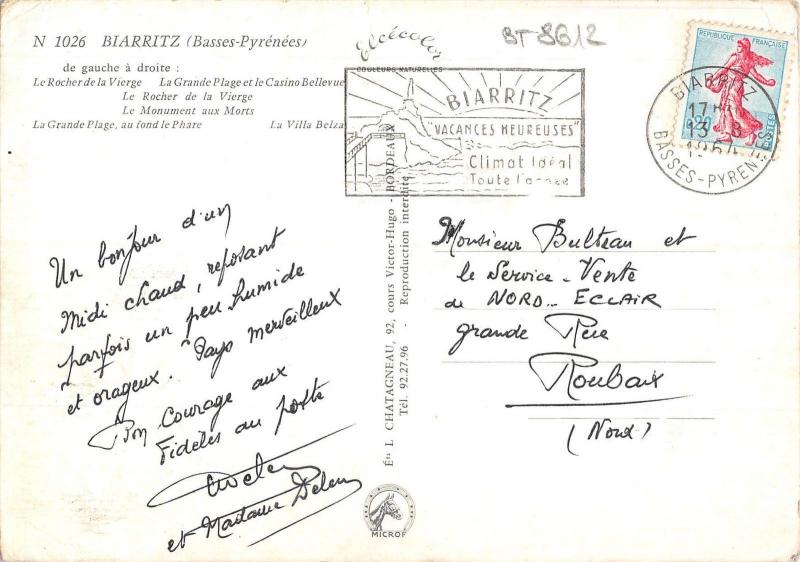 N 1026 BIARRITZ (Basses-Pyrénées)
de gauche à droite :
Le Rocher de la Vierge La Grande Plage et le Casino Bellevue
Le Rocher de la Vierge
Le Monument aux Morts
La Grande Plage, au fond le Phare La Villa Belza
Elcécolor
COULEURS NATURELLES
BT 8612
BIARRITZ
"VACANCES HEUREUSES"
Climat Idéal
Toute l'année
REPUBLIQUE FRANÇAISE
0,20
POSTES
BIARRITZ
17H
13-8
1964
BASSES-PYRENEES
Un bonjour d'un
Midi chaud, reposant
parfois un peu humide
et orageux. Pays merveilleux
Bon courage aux
Fidèles au poste
et Madame
Éts L. CHATAGNEAU, 92, cours Victor-Hugo - BORDEAUX
Tél. 92.27.96 - Reproduction interdite
MICROF
Monsieur Bulteau et
le Service-Vente
de NORD-ECLAIR
grande Rue
Roubaix
(Nord)